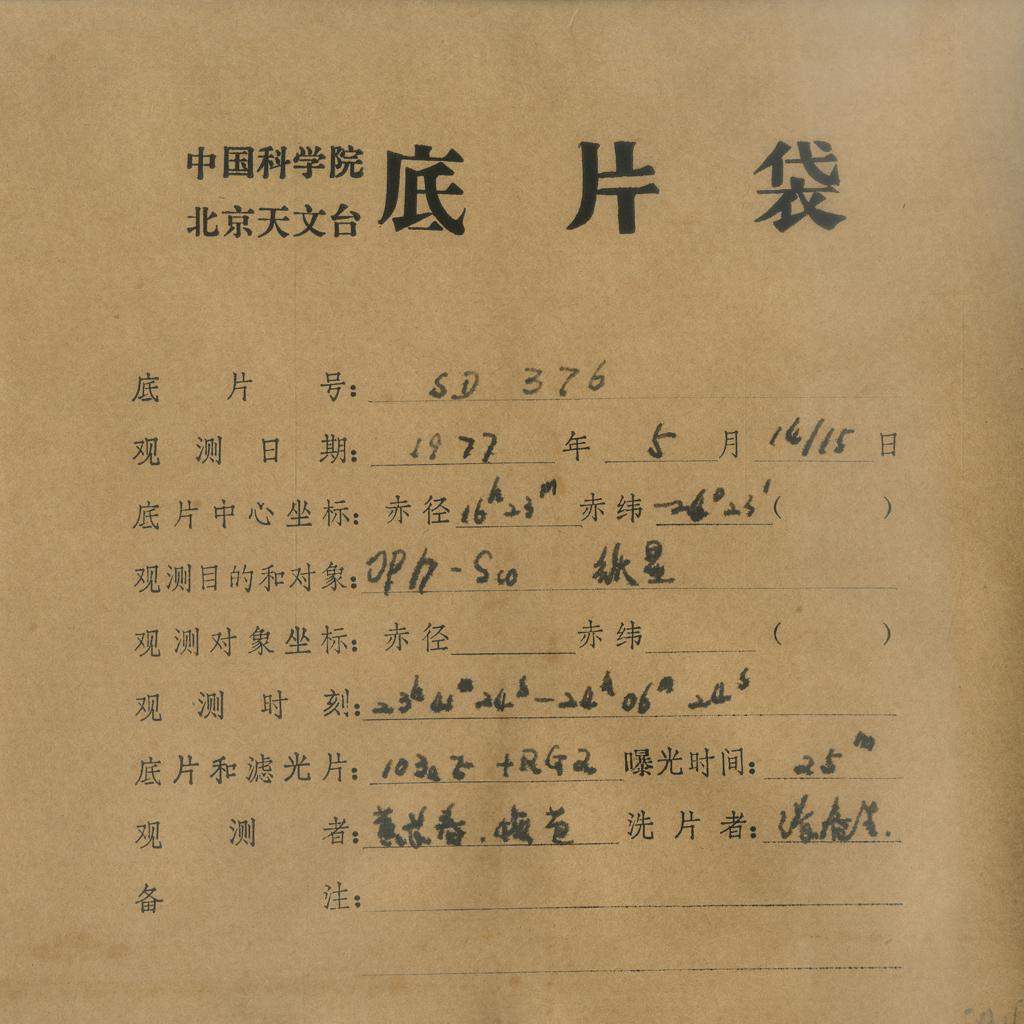 中国科学院
北京天文台
底片袋
底片号: SD 376
观测日期: 1977年 5月 14/15日
底片中心坐标: 赤径 16h23m 赤纬 -26°23′ ( )
观测目的和对象: Oph-Sco 红星
观测对象坐标: 赤径 赤纬 ( )
观测时刻: 23h41m24s-24h06m24s
底片和滤光片: 103aE +RG2 曝光时间: 25m
观测者: 梅苞
洗片者:
备注: